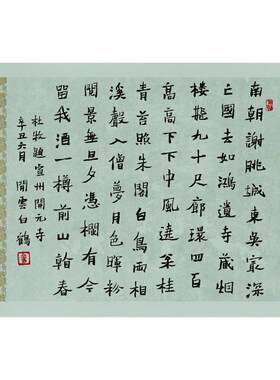 南朝謝朓城東吳冣深
亡國去如鴻遺寺藏烟
樓飛九十尺廊環四百
髙髙下下中風遶松桂
青苔照朱閣白鳥兩相
溪聲入僧夢月色暉粉
閱景無旦夕憑欄有今
留我酒一樽前山看春
杜牧題宣州開元寺
辛丑六月 閒雲白鶴